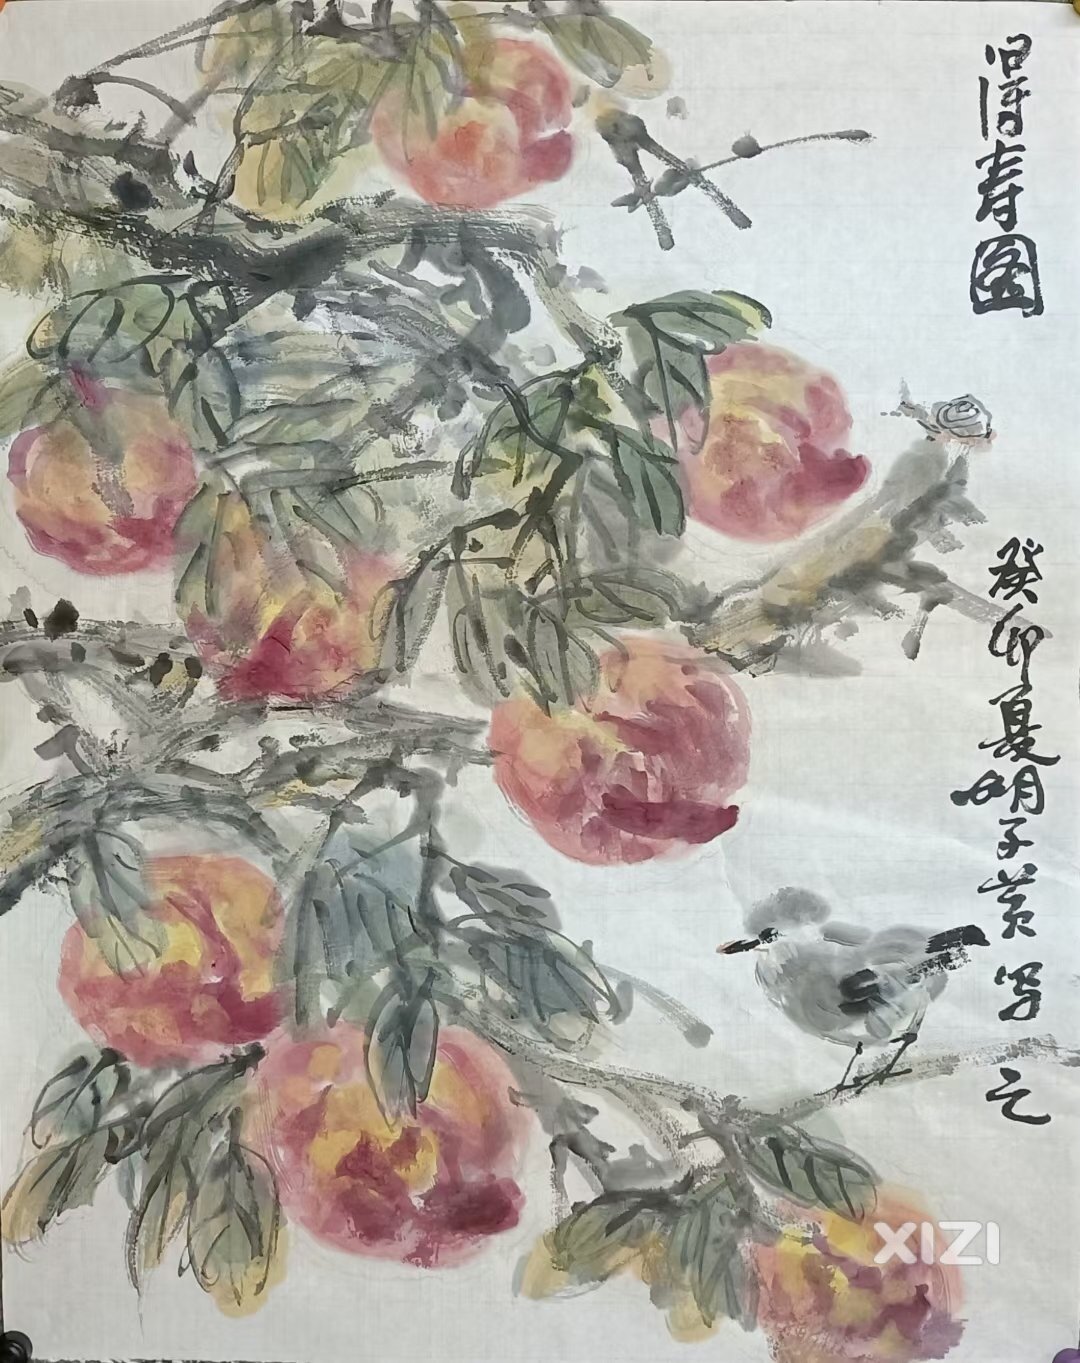 得寿图
癸卯夏明子黄写之
XIZI